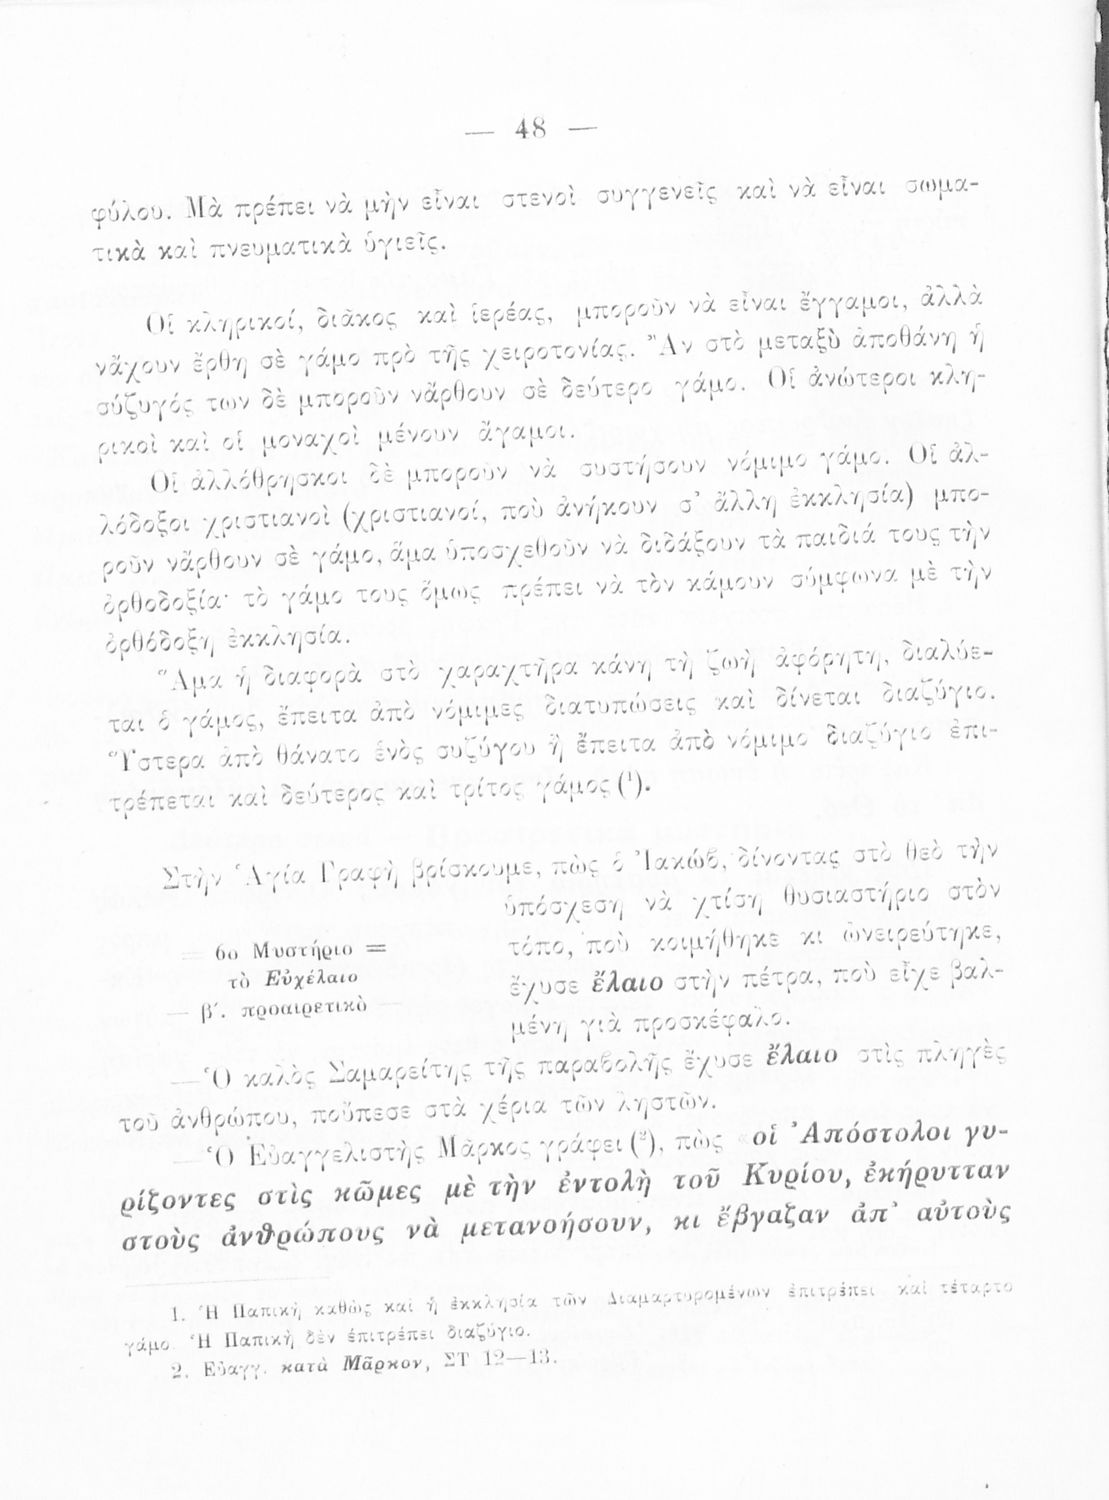 — 48 —
φύλου. Μὰ πρέπει νὰ μὴν εἶναι στενοὶ συγγενεῖς καὶ νὰ εἶναι σωμα-
τικὰ καὶ πνευματικὰ ὑγιεῖς.
Οἱ κληρικοί, διᾶκος καὶ ἱερέας, μποροῦν νὰ εἶναι ἔγγαμοι, ἀλλὰ
νἄχουν ἔρθη σὲ γάμο πρὸ τῆς χειροτονίας. Ἂν στὸ μεταξὺ ἀποθάνη ἡ
σύζυγός των δὲ μποροῦν νἄρθουν σὲ δεύτερο γάμο. Οἱ ἀνώτεροι κλη-
ρικοὶ καὶ οἱ μοναχοὶ μένουν ἄγαμοι.
Οἱ ἀλλόθρησκοι δὲ μποροῦν νὰ συστήσουν νόμιμο γάμο. Οἱ ἀλ-
λόδοξοι χριστιανοὶ (χριστιανοί, ποὺ ἀνήκουν σ’ ἄλλη ἐκκλησία) μπο-
ροῦν νἄρθουν σὲ γάμο, ἅμα ὑποσχεθοῦν νὰ διδάξουν τὰ παιδιά τους τὴν
ὀρθοδοξία· τὸ γάμο τους ὅμως πρέπει νὰ τὸν κάμουν σύμφωνα μὲ τὴν
ὀρθόδοξη ἐκκλησία.
Ἅμα ἡ διαφορὰ στὸ χαραχτῆρα κάνη τὴ ζωὴ ἀφόρητη, διαλύε-
ται ὁ γάμος, ἔπειτα ἀπὸ νόμιμες διατυπώσεις καὶ δίνεται διαζύγιο.
Ὕστερα ἀπὸ θάνατο ἑνὸς συζύγου ἢ ἔπειτα ἀπὸ νόμιμο διαζύγιο ἐπι-
τρέπεται καὶ δεύτερος καὶ τρίτος γάμος (¹).
Στὴν Ἁγία Γραφὴ βρίσκουμε, πὼς ὁ Ἰακώβ, δίνοντας στὸ θεὸ τὴν
ὑπόσχεση νὰ χτίση θυσιαστήριο στὸν
τόπο, ποὺ κοιμήθηκε κι ὠνειρεύτηκε,
ἔχυσε ἔλαιο στὴν πέτρα, ποὺ εἶχε βαλ-
μένη γιὰ προσκέφαλο.
— 6ο Μυστήριο =
τὸ Εὐχέλαιο
— β′. προαιρετικὸ —
— Ὁ καλὸς Σαμαρείτης τῆς παραβολῆς ἔχυσε ἔλαιο στὶς πληγὲς
τοῦ ἀνθρώπου, ποὔπεσε στὰ χέρια τῶν ληστῶν.
— Ὁ Εὐαγγελιστὴς Μᾶρκος γράφει (²), πὼς «οἱ Ἀπόστολοι γυ-
ρίζοντες στὶς κῶμες μὲ τὴν ἐντολὴ τοῦ Κυρίου, ἐκήρυτταν
στοὺς ἀνθρώπους νὰ μετανοήσουν, κι ἔβγαζαν ἀπ’ αὐτοὺς
1. Ἡ Παπικὴ καθὼς καὶ ἡ ἐκκλησία τῶν Διαμαρτυρομένων ἐπιτρέπει καὶ τέταρτο
γάμο. Ἡ Παπικὴ δὲν ἐπιτρέπει διαζύγιο.
2. Εὐαγγ. κατὰ Μᾶρκον, ΣΤ 12—13.